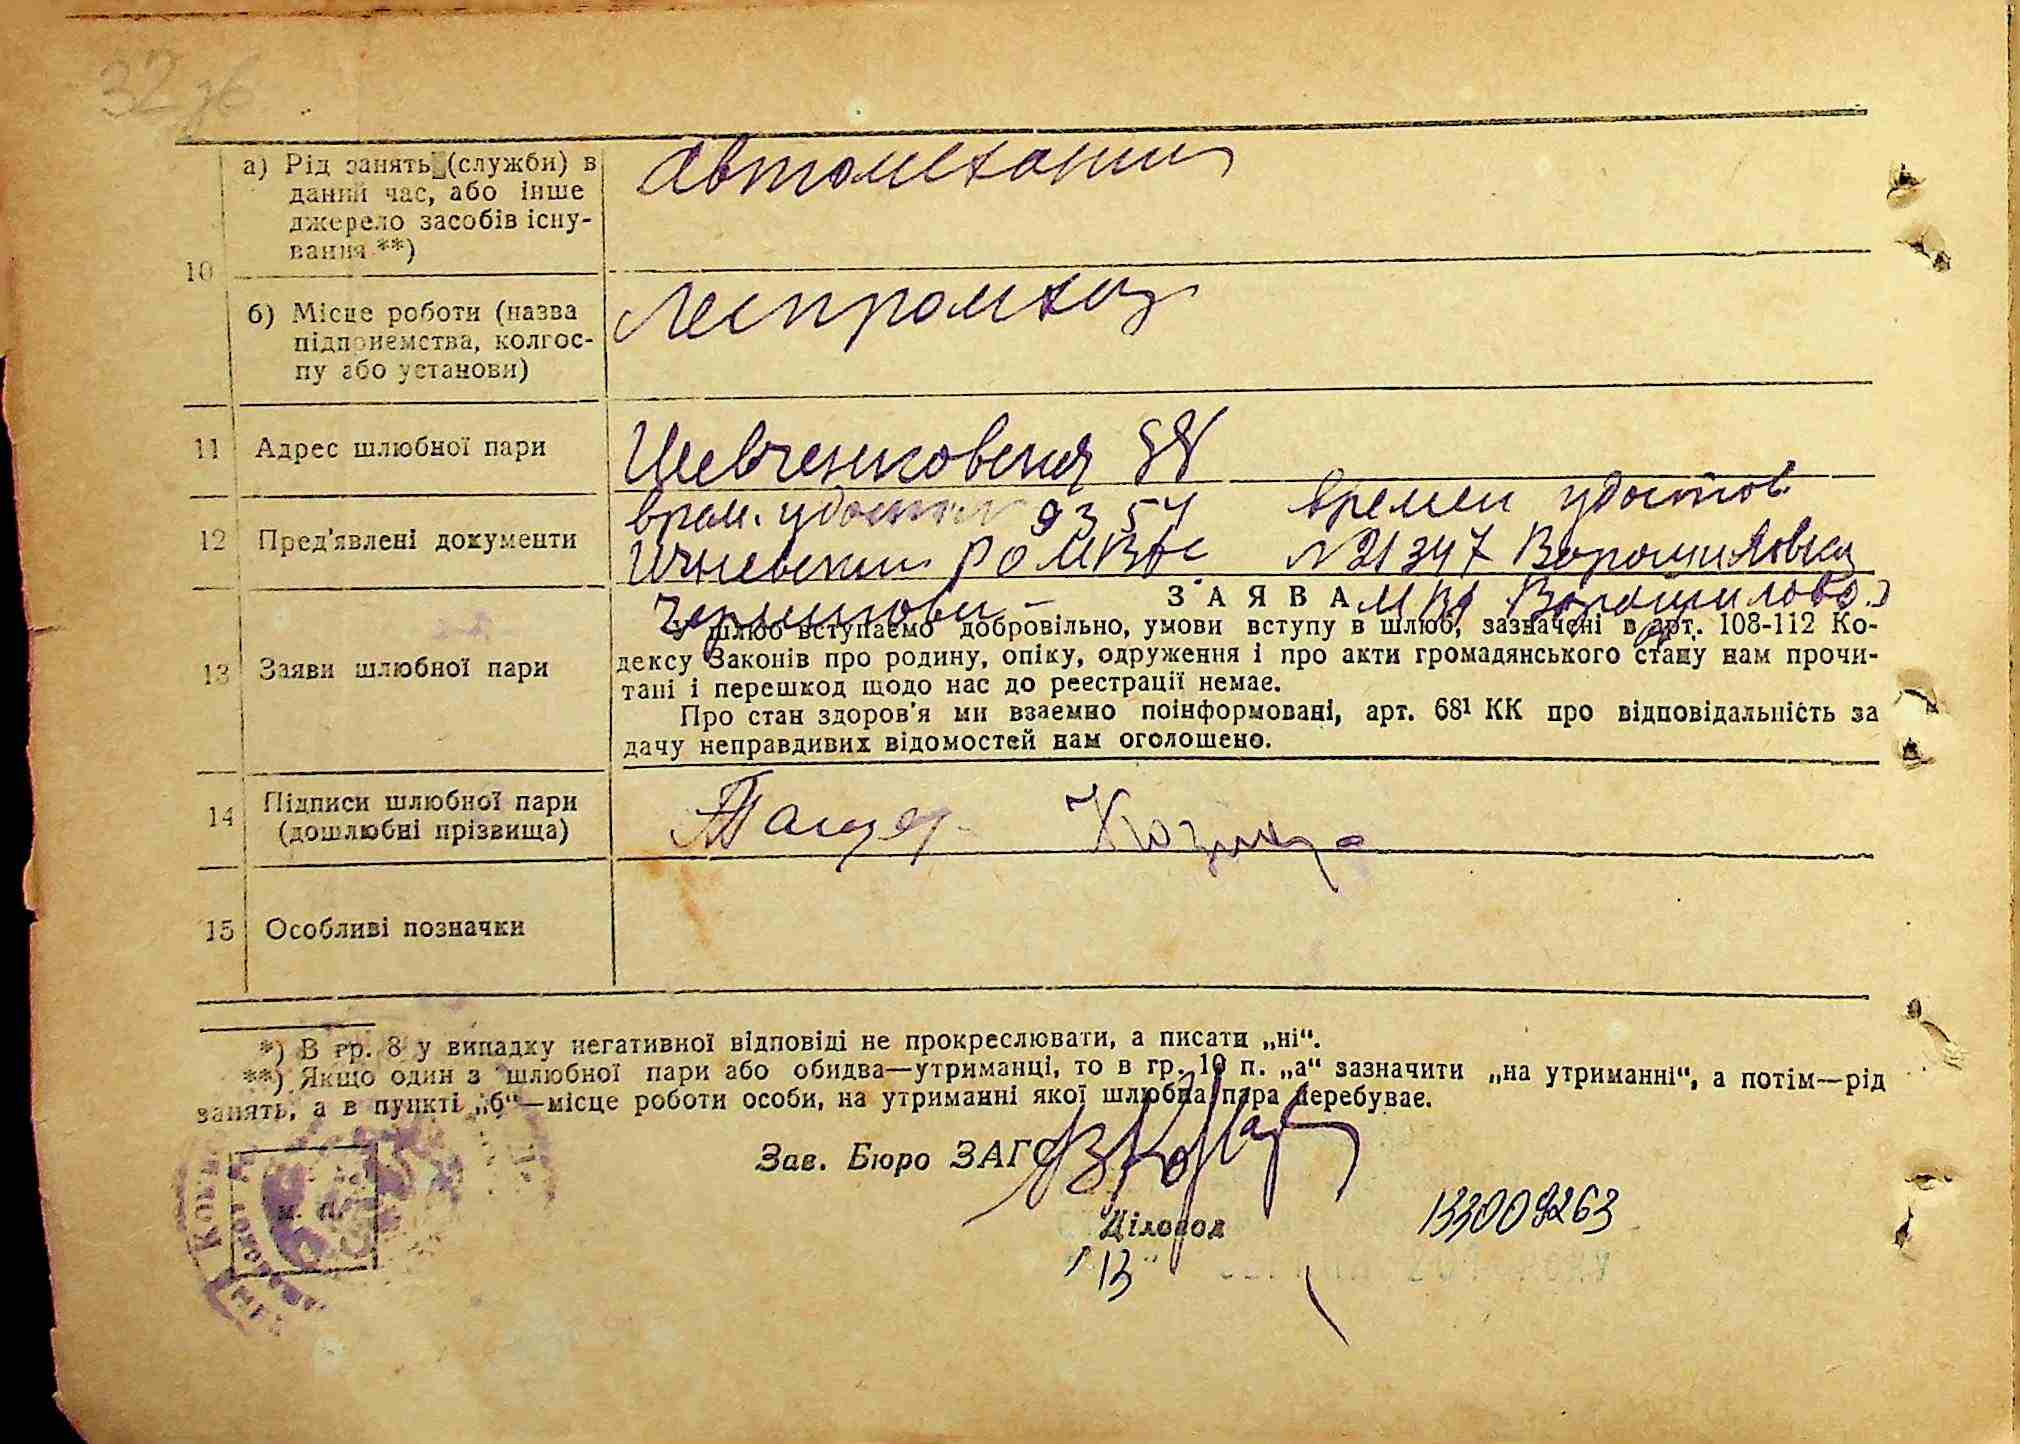 32 зб
а) Рід занять (служби) в
даний час, або інше
джерело засобів існу-
вання **)
автомеханик
10
б) Місце роботи (назва
підприємства, колгос-
пу або установи)
Леспромхоз
11 Адрес шлюбної пари
Шевченковская
12 Пред'явлені документи
врем. удостов 9354
Ичневским РОМВД
Чернигови-
времен удостов.
№21347 Ворошиловка
МВД Ворошиловс.
13 Заяви шлюбної пари
ЗАЯВА
У шлюб вступаємо добровільно, умови вступу в шлюб, зазначені в арт. 108-112 Ко-
дексу Законів про родину, опіку, одруження і про акти громадянського стану нам прочи-
тані і перешкод щодо нас до реєстрації немає.
Про стан здоров'я ми взаємно поінформовані, арт. 68¹ КК про відповідальність за
дачу неправдивих відомостей нам оголошено.
14 Підписи шлюбної пари
(дошлюбні прізвища)
15 Особливі позначки
*) В гр. 8 у випадку негативної відповіді не прокреслювати, а писати „ні“.
**) Якщо один з шлюбної пари або обидва—утриманці, то в гр. 10 п. „а“ зазначити „на утриманні“, а потім—рід
занять, а в пункті „б“—місце роботи особи, на утриманні якої шлюбна пара перебуває.
Зав. Бюро ЗАГС
м. п.
Діловод
133009263
"13"